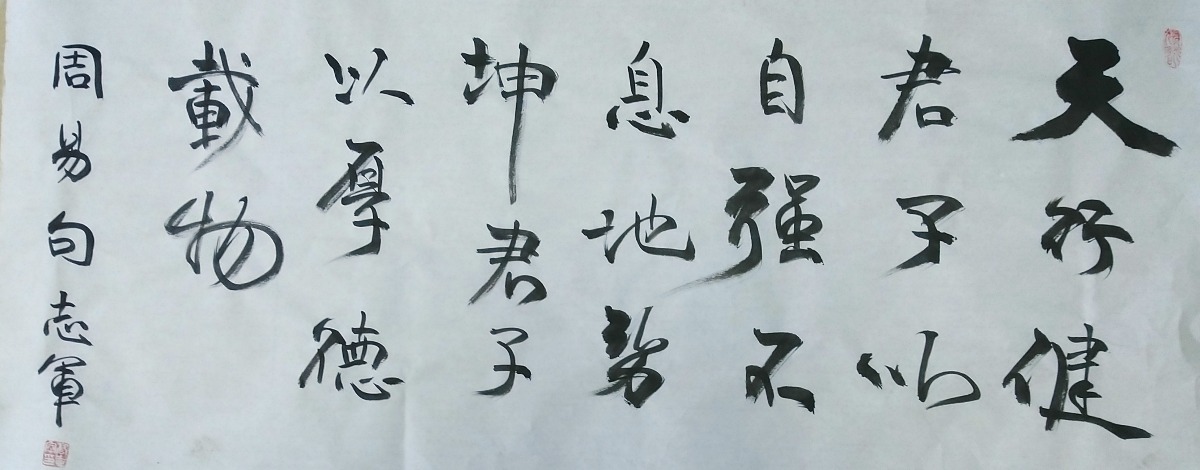 天行健
君子以
自强不
息地势
坤君子
以厚德
載物
周易句志軍